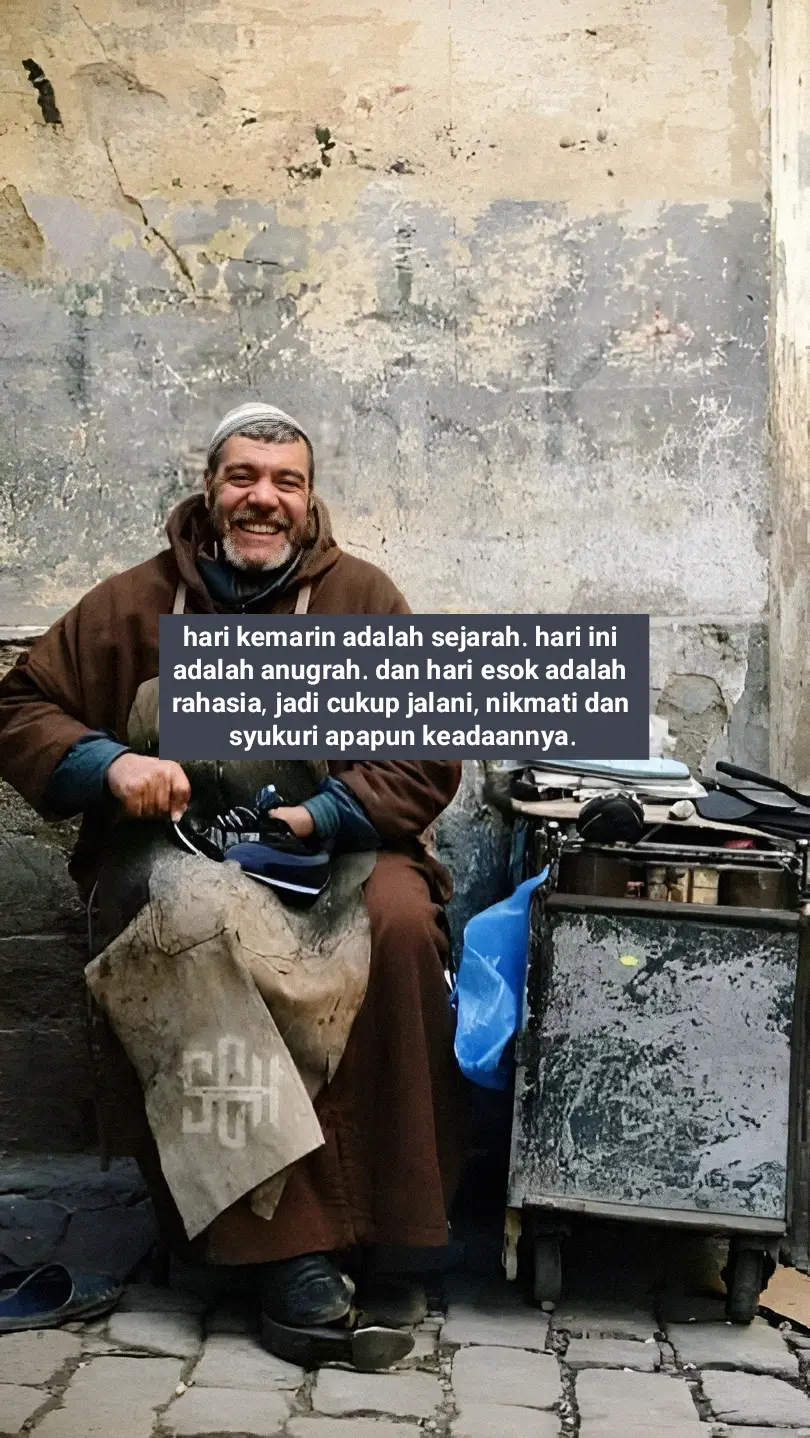 hari kemarin adalah sejarah. hari ini
adalah anugrah. dan hari esok adalah
rahasia, jadi cukup jalani, nikmati dan
syukuri apapun keadaannya.